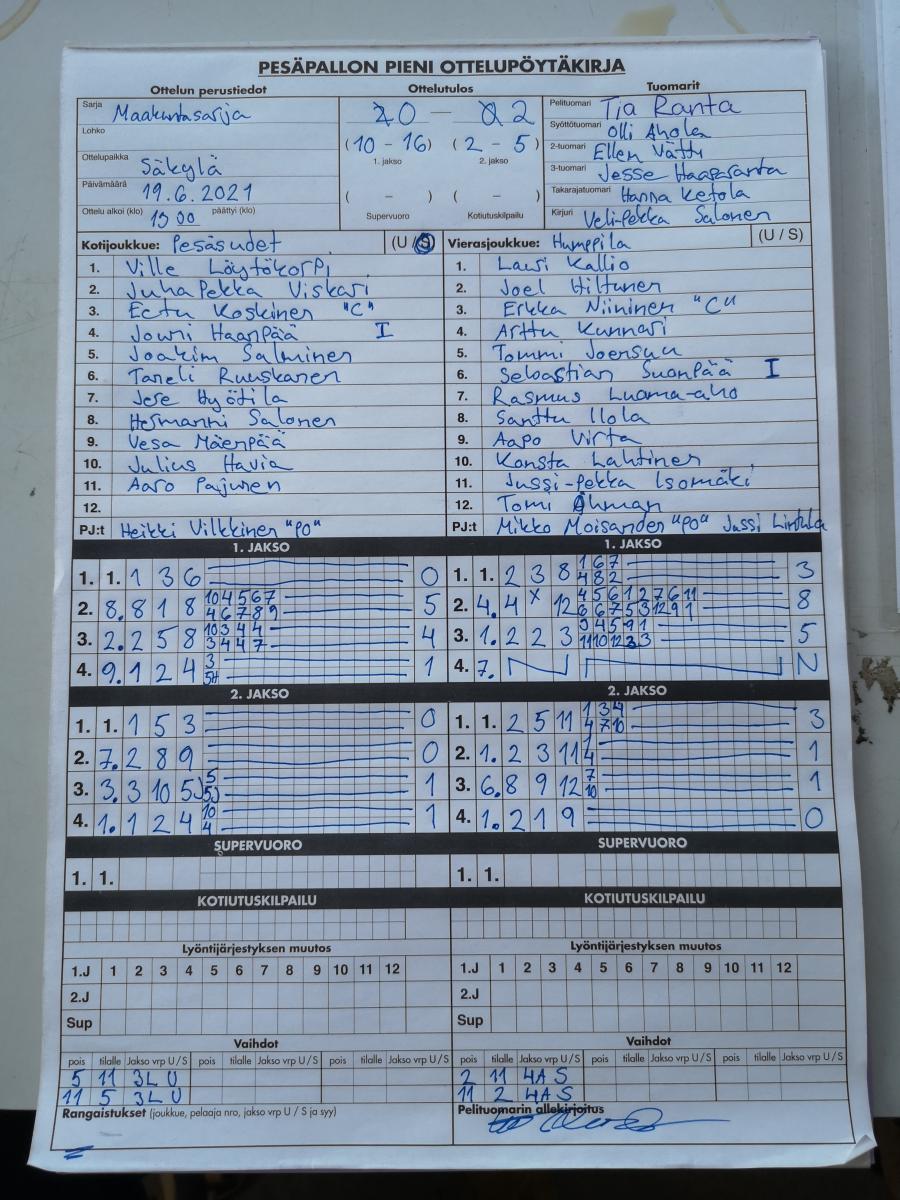 PESÄPALLON PIENI OTTELUPÖYTÄKIRJA
Ottelun perustiedot Ottelutulos Tuomarit
Sarja Maakuntasarja
Lohko
Ottelupaikka Säkylä
Päivämäärä 19.6.2021
Ottelu alkoi (klo) 13 00 päättyi (klo)
0 — 2
(10 - 16) (2 - 5)
1. jakso 2. jakso
( - ) ( - )
Supervuoro Kotiutuskilpailu
Pelituomari Tia Ranta
Syöttötuomari Olli Ahola
2-tuomari Ellen Vättö
3-tuomari Jesse Haaparanta
Takarajatuomari Hanna Ketola
Kirjuri Veli-Pekka Salonen
Kotijoukkue: Pesäsudet (U / S)
1. Ville Löytökorpi
2. Juha Pekka Viskari
3. Eetu Koskinen "C"
4. Jouni Haanpää I
5. Joakim Salminen
6. Taneli Ruuskanen
7. Jere Hyötilä
8. Hermanni Salonen
9. Vesa Mäenpää
10. Julius Havia
11. Aaro Paijunen
12.
PJ:t Heikki Vilkkinen "PO"
Vierasjoukkue: Humppila (U / S)
1. Lauri Kallio
2. Joel Hiltunen
3. Erkka Niininen "C"
4. Arttu Kunnari
5. Tommi Joensuu
6. Sebastian Suonpää I
7. Rasmus Luoma-aho
8. Santtu Ilola
9. Aapo Virta
10. Konsta Lahtinen
11. Jussi-Pekka Isomäki
12. Tomi Åhman
PJ:t Mikko Moisander "PO" Jussi Lintula
1. JAKSO
1. 1. 1 3 6 0
2. 8. 8 1 8 10 4 5 6 7 5
4 6 7 8 9
3. 2. 2 5 8 10 3 4 4 4
3 4 4 7
4. 9. 1 2 4 3 1
5H
1. JAKSO
1. 1. 2 3 8 1 6 7 3
4 8 2
2. 4. 4 x 12 4 5 6 1 2 7 6 11 8
6 6 7 5 3 12 9 1
3. 1. 2 2 3 9 4 5 9 1 5
11 10 12 3
4. 7. N
2. JAKSO
1. 1. 1 5 3 0
2. 7. 2 8 9 0
3. 3. 3 10 5J 5 1
5J
4. 1. 1 2 4 10 1
4
2. JAKSO
1. 1. 2 5 11 1 3 4 3
4 7 10
2. 1. 2 3 11 1 1
4
3. 6. 8 9 12 7 1
10
4. 1. 2 1 9 0
SUPERVUORO SUPERVUORO
1. 1. 1. 1.
KOTIUTUSKILPAILU KOTIUTUSKILPAILU
Lyöntijärjestyksen muutos Lyöntijärjestyksen muutos
1.J 1 2 3 4 5 6 7 8 9 10 11 12 1.J 1 2 3 4 5 6 7 8 9 10 11 12
2.J 2.J
Sup Sup
Vaihdot Vaihdot
pois tilalle Jakso vrp U / S pois tilalle Jakso vrp U / S pois tilalle Jakso vrp U / S pois tilalle Jakso vrp U / S pois tilalle Jakso vrp U / S pois tilalle Jakso vrp U / S
5 11 3L U 2 11 4A S
11 5 3L U 11 2 4A S
Rangaistukset (joukkue, pelaaja nro, jakso vrp U / S ja syy) Pelituomarin allekirjoitus